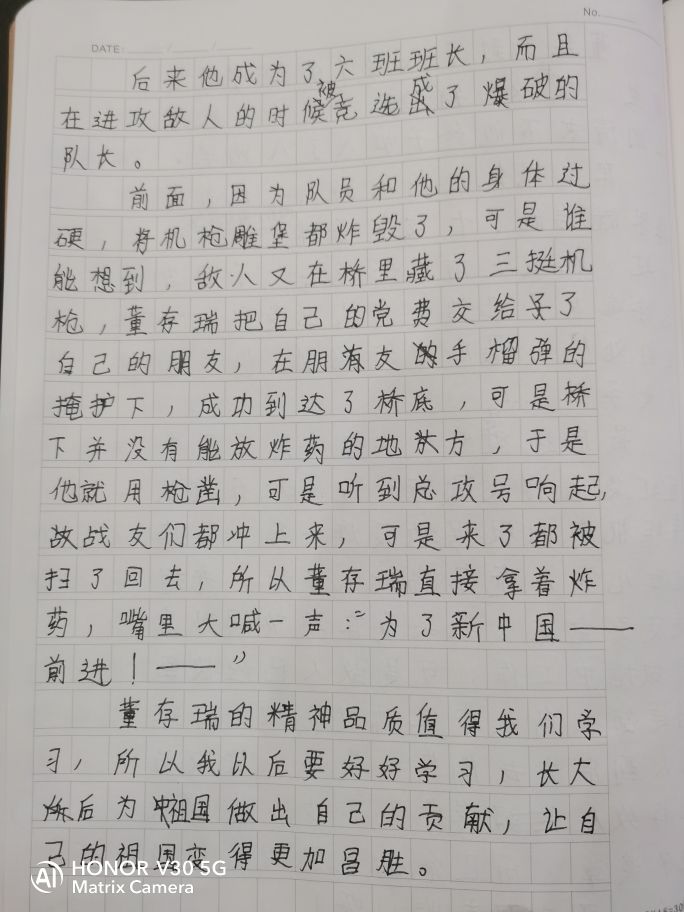 No.
DATE: / /
后来他成为了六班班长，而且
在进攻敌人的时候被竞选成了爆破的
队长。
前面，因为队员和他的身体过
硬，将机枪雕堡都炸毁了，可是谁
能想到，敌人又在桥里藏了三挺机
枪，董存瑞把自己的党费交给予了
自己的朋友，在朋友的手榴弹的
掩护下，成功到达了桥底，可是桥
下并没有能放炸药的地方，于是
他就用枪凿，可是听到总攻号响起，
战友们都冲上来，可是来了都被
扫了回去，所以董存瑞直接拿着炸
药，嘴里大喊一声：“为了新中国——
前进！——”
董存瑞的精神品质值得我们学
习，所以我以后要好好学习，长大
后为祖国做出自己的贡献，让自
己的祖国变得更加昌胜。
AI HONOR V30 5G
Matrix Camera